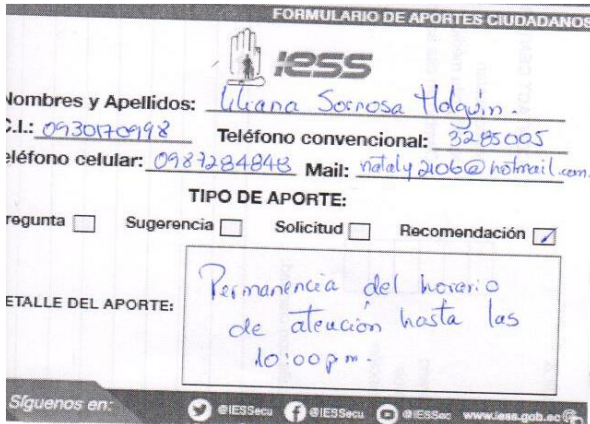 FORMULARIO DE APORTES CIUDADANOS
IESS
Nombres y Apellidos: Liliana Sornosa Holguín.
C.I.: 0930170998 Teléfono convencional: 3285005
eléfono celular: 0987284848 Mail: nataly2106@hotmail.com.
TIPO DE APORTE:
regunta Sugerencia Solicitud Recomendación
ETALLE DEL APORTE:
Permanencia del horario
de atención hasta las
10:00 pm.
Síguenos en: @IESSecu @IESSecu @IESSec www.iess.gob.ec